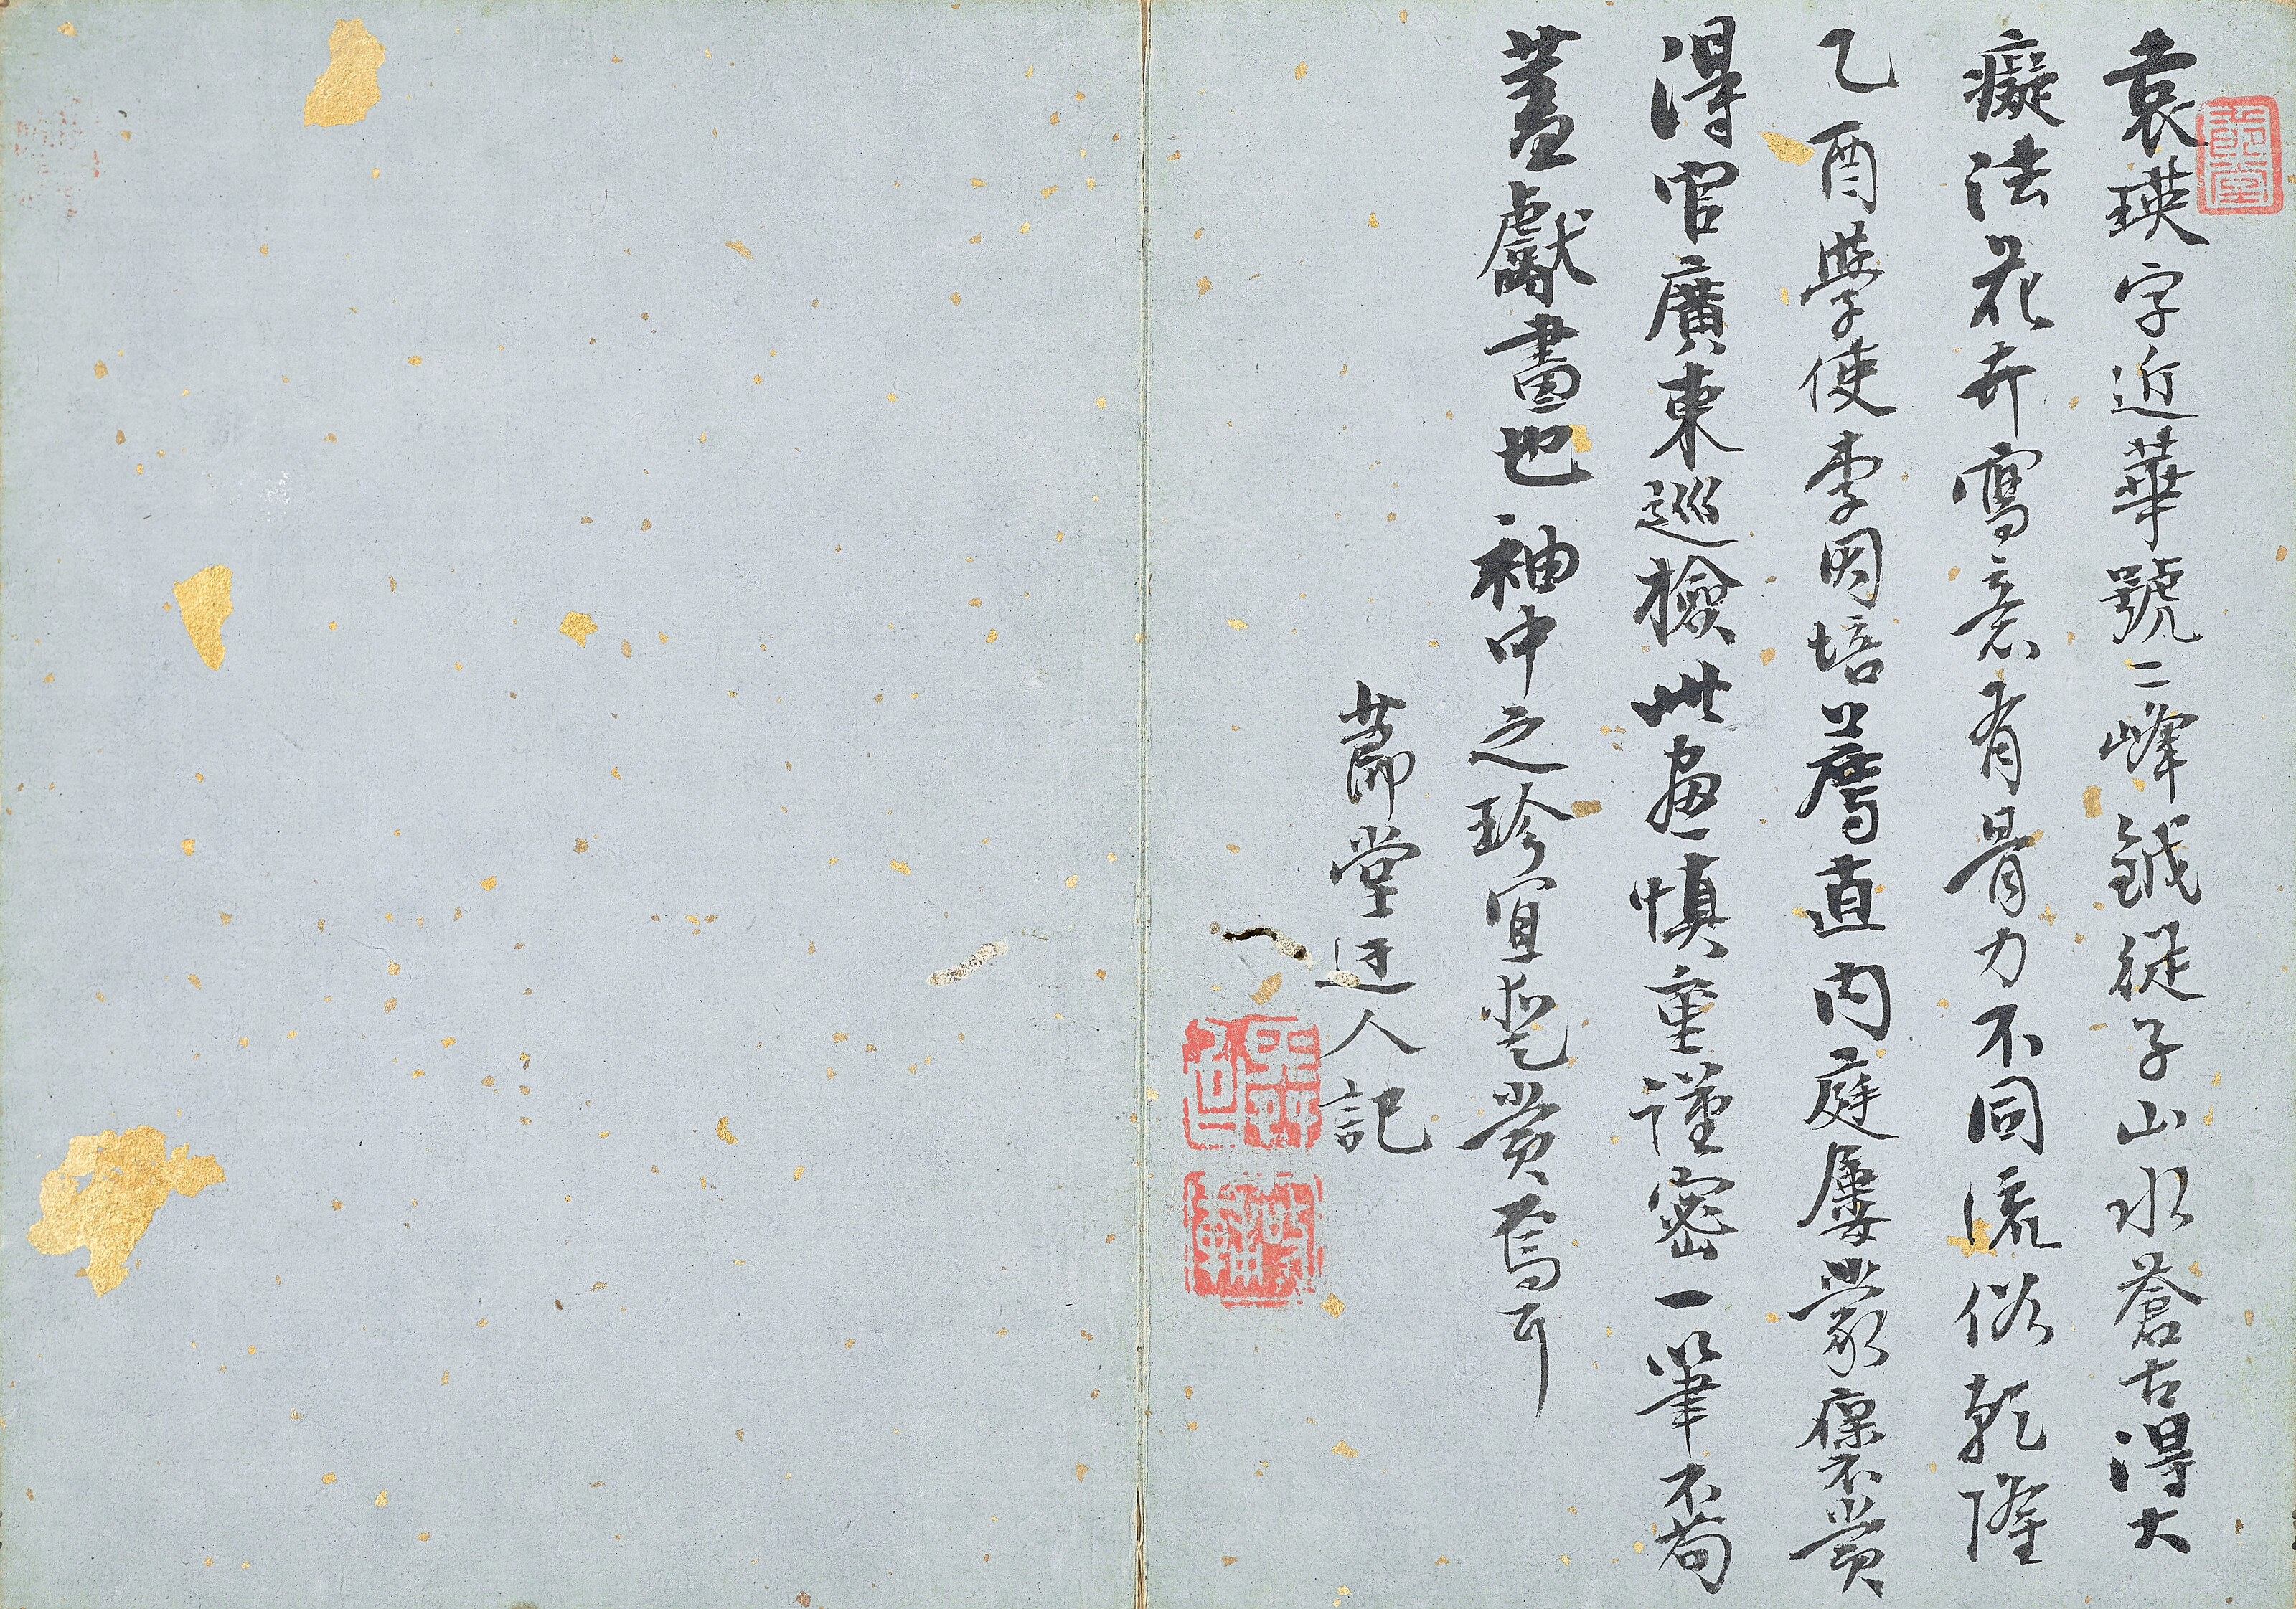 袁瑛字近華號二峰鉞從子山水蒼古得大
癡法花卉寫意有骨力不同流俗乾隆
乙酉學使李因培薦直内庭屢蒙褒賞
得官廣東巡檢此画慎重謹密一筆不苟
蓋獻畫也袖中之珍宜 賞焉可
莭堂迂人記